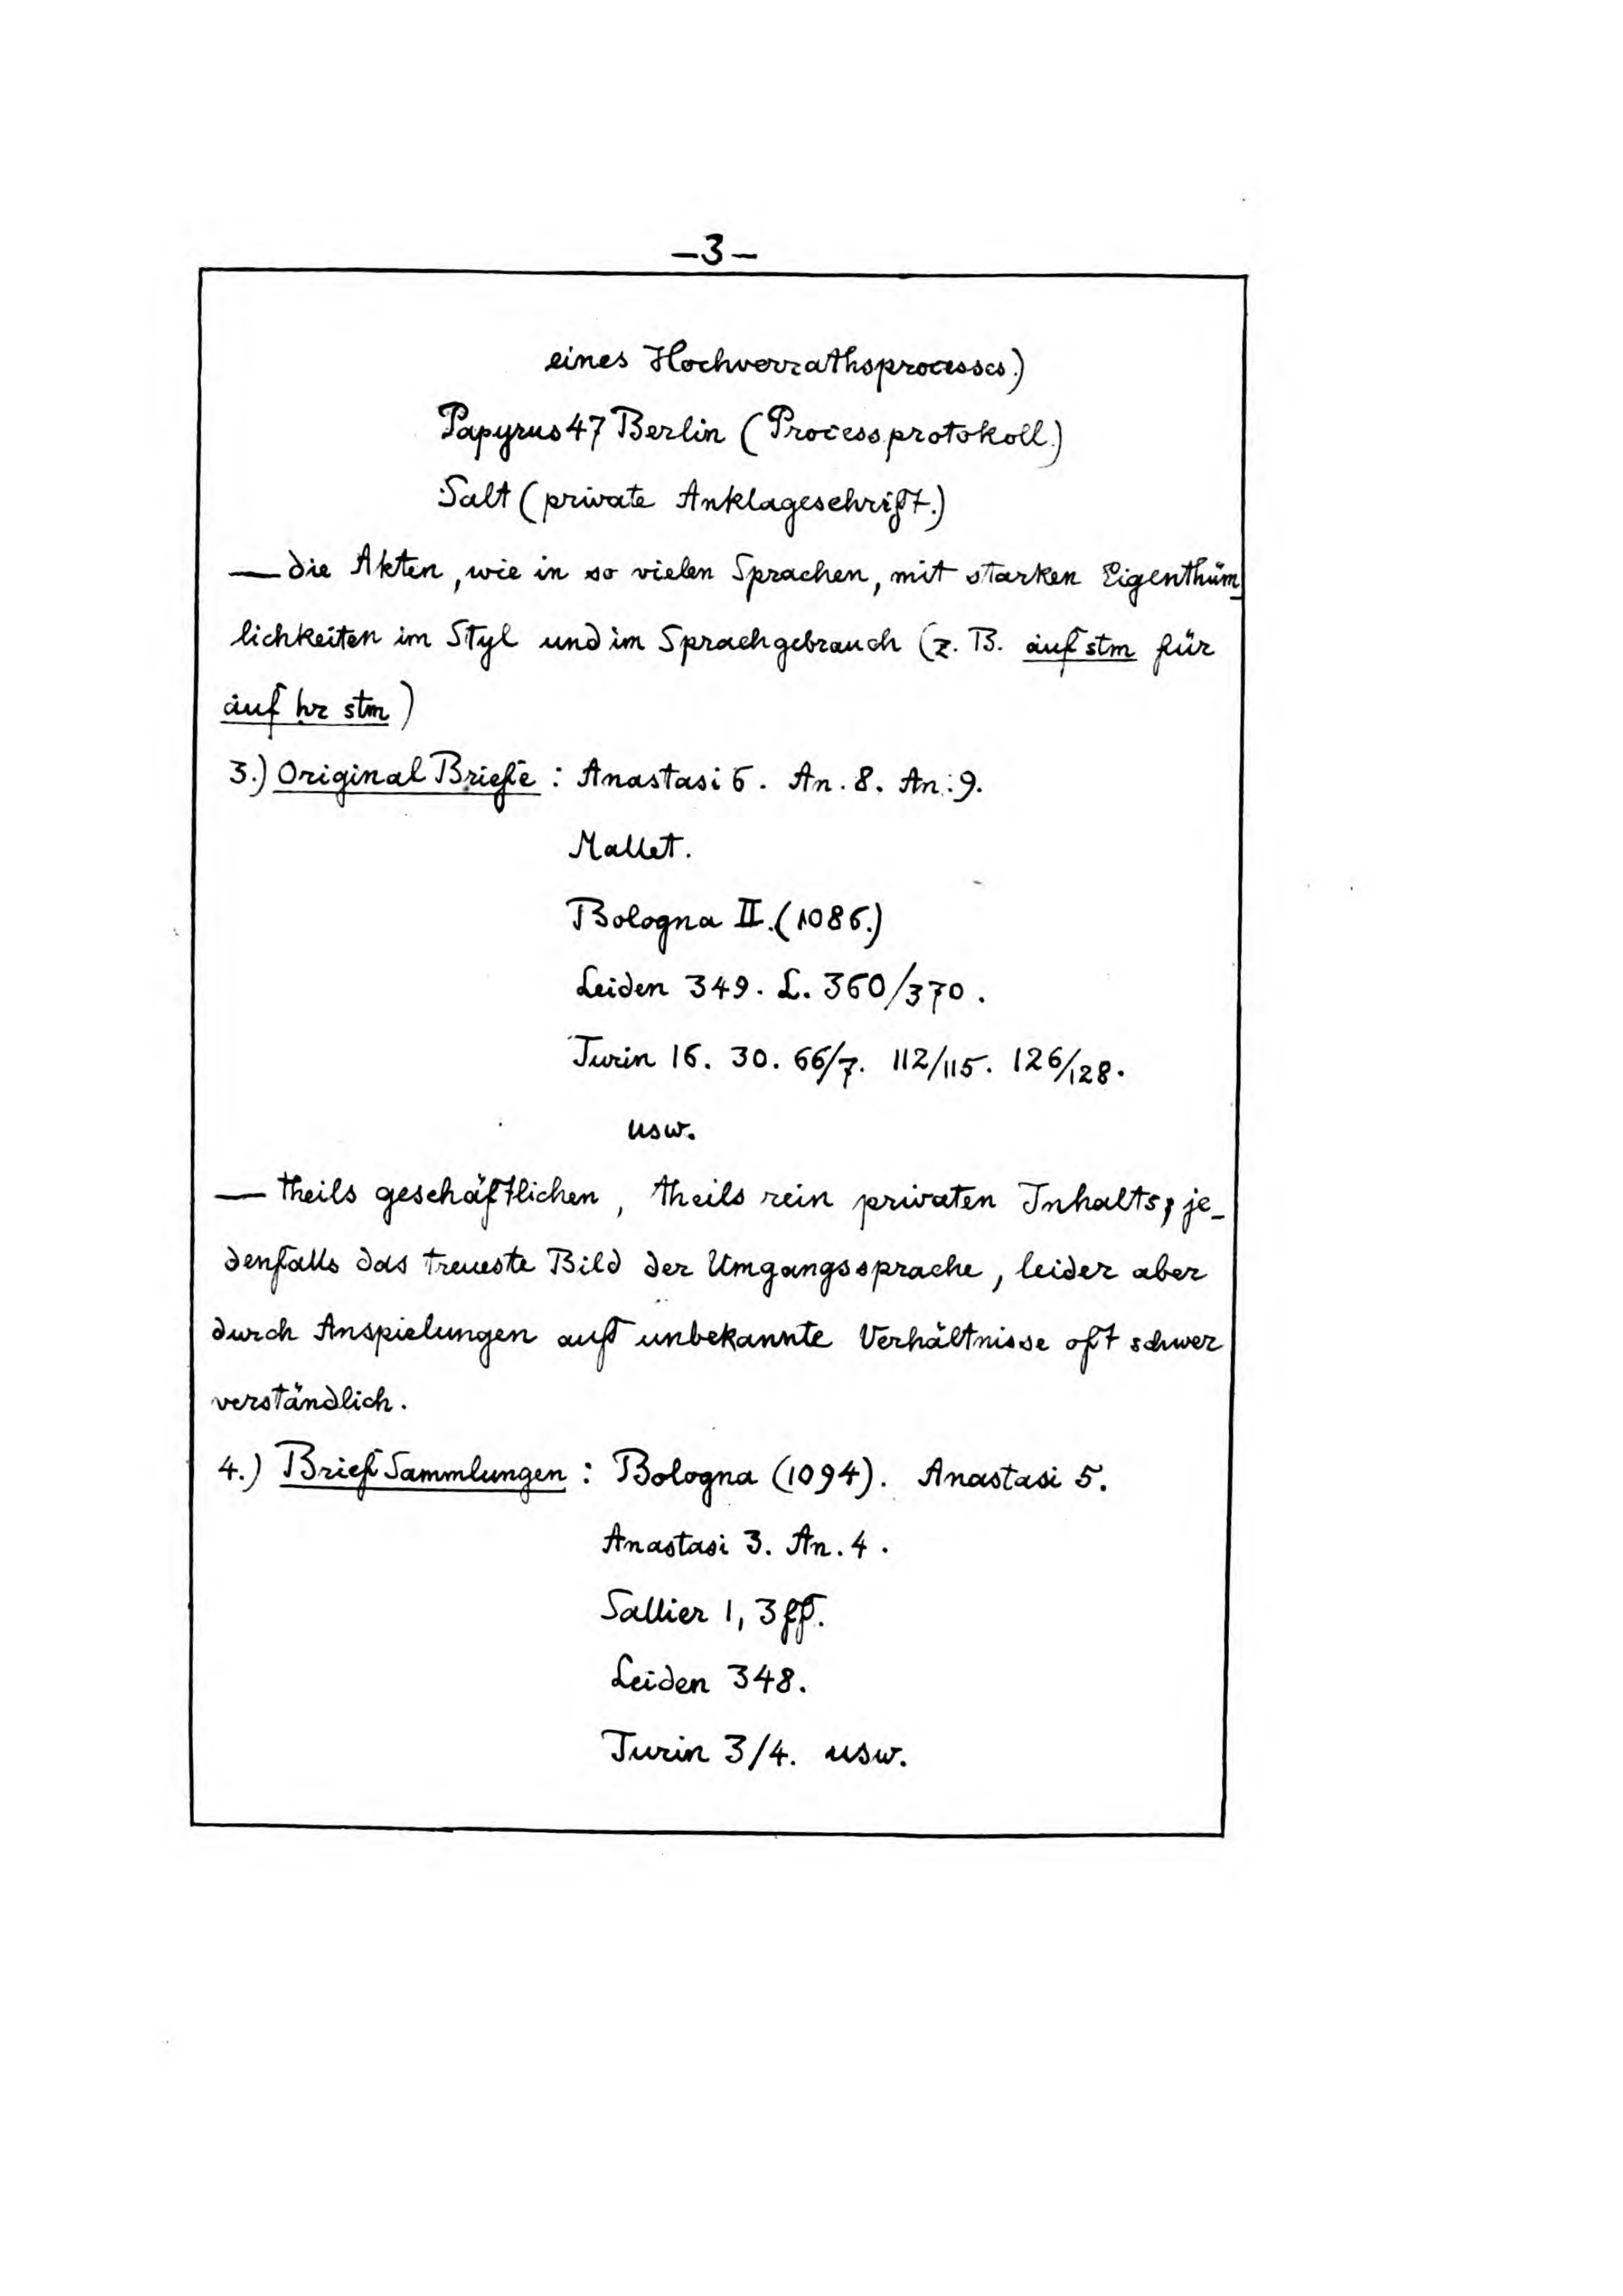 —3—
eines Hochverrathsprocesses.)
Papyrus 47 Berlin (Processprotokoll.)
Salt (private Anklageschrift.)
— die Akten, wie in so vielen Sprachen, mit starken Eigenthüm_
lichkeiten im Styl und im Sprachgebrauch (z. B. äuf stm für
äuf ḥr stm)
3.) Original Briefe : Anastasi 6. An. 8. An. 9.
Mallet.
Bologna II. (1086.)
Leiden 349. L. 360/370.
Turin 16. 30. 66/7. 112/115. 126/128.
usw.
— theils geschäftlichen, theils rein privaten Inhalts; je_
denfalls das treueste Bild der Umgangssprache, leider aber
durch Anspielungen auf unbekannte Verhältnisse oft schwer
verständlich.
4.) Brief Sammlungen : Bologna (1094). Anastasi 5.
Anastasi 3. An. 4.
Sallier 1, 3 ff.
Leiden 348.
Turin 3/4. usw.